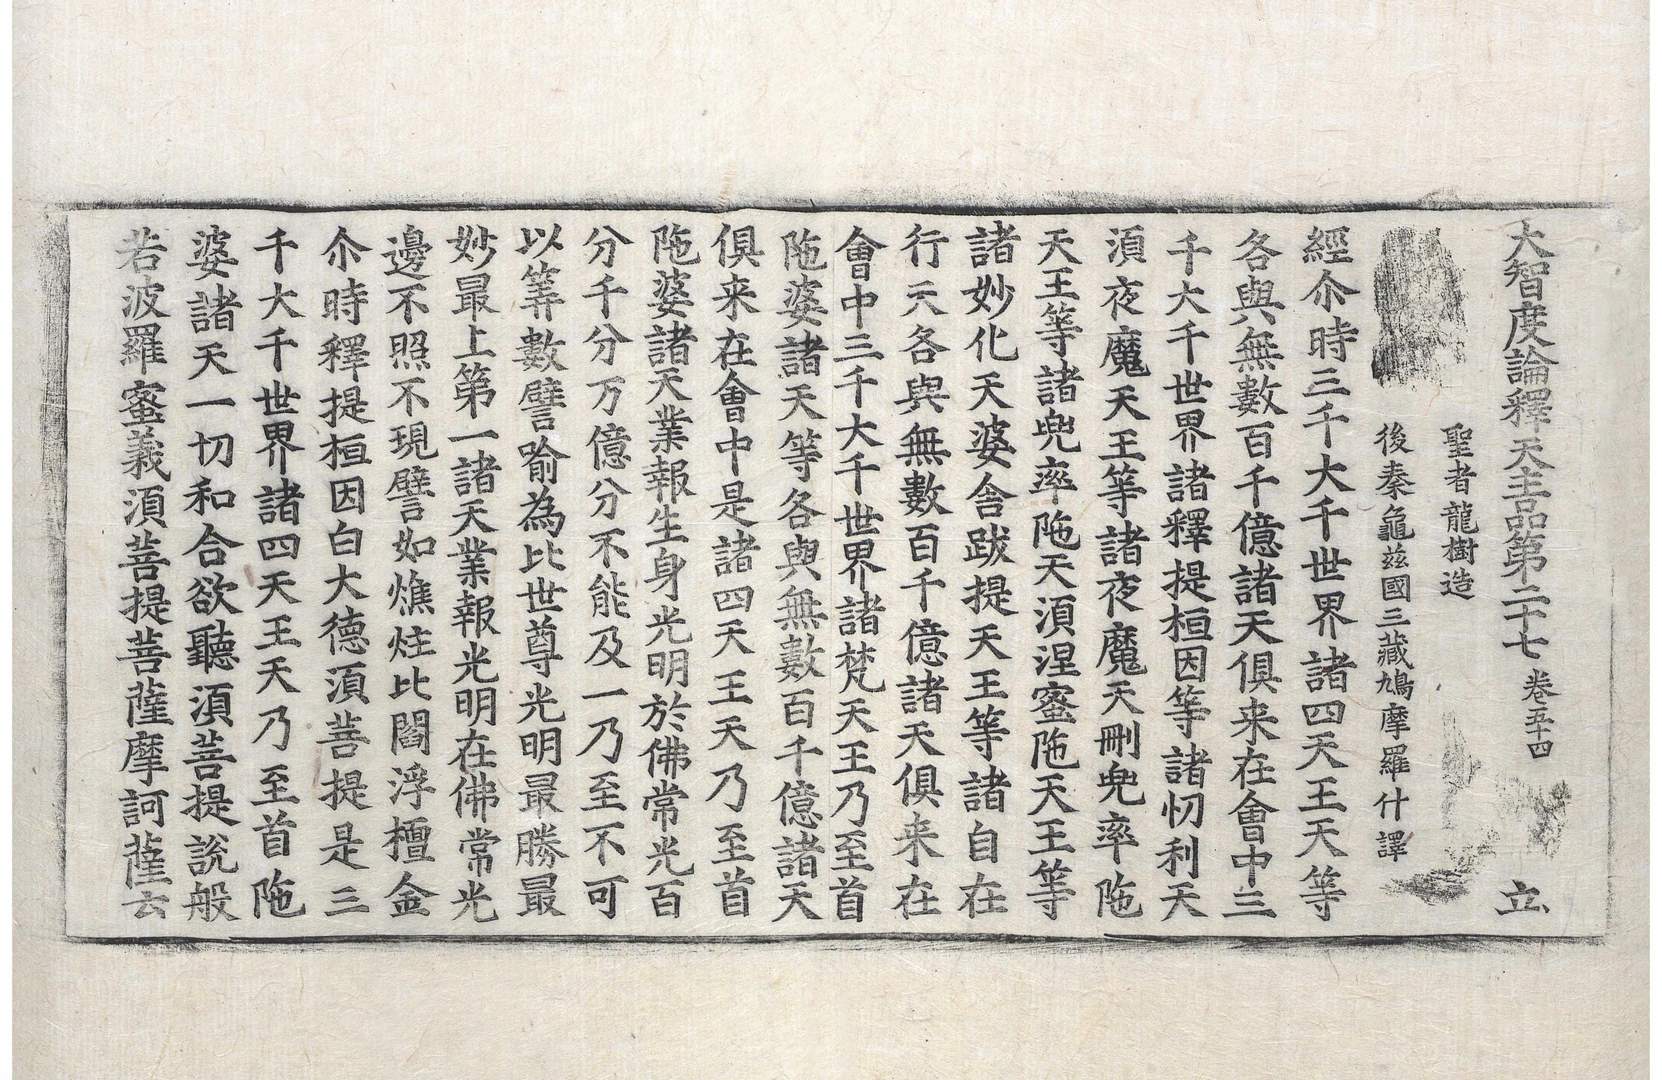 大智度論釋天主品第二十七 卷五十四 立
聖者龍樹造
後秦龜茲國三藏鳩摩羅什譯
經尒時三千大千世界諸四天王天等
各與無數百千億諸天俱来在會中三
千大千世界諸釋提桓因等諸忉利天
湏夜魔天王等諸夜魔天刪兜率陁
天王等諸兜率陁天湏涅蜜陁天王等
諸妙化天婆舍跋提天王等諸自在
行天各與無數百千億諸天俱来在
會中三千大千世界諸梵天王乃至首
陁婆諸天等各與無數百千億諸天
俱来在會中是諸四天王天乃至首
陁婆諸天業報生身光明於佛常光百
分千分万億分不能及一乃至不可
以筭數譬喻為比世尊光明最勝最
妙最上第一諸天業報光明在佛常光
邊不照不現譬如燋炷比閻浮檀金
尒時釋提桓因白大德湏菩提是三
千大千世界諸四天王天乃至首陁
婆諸天一切和合欲聽湏菩提說般
若波羅蜜義湏菩提菩薩摩訶薩云